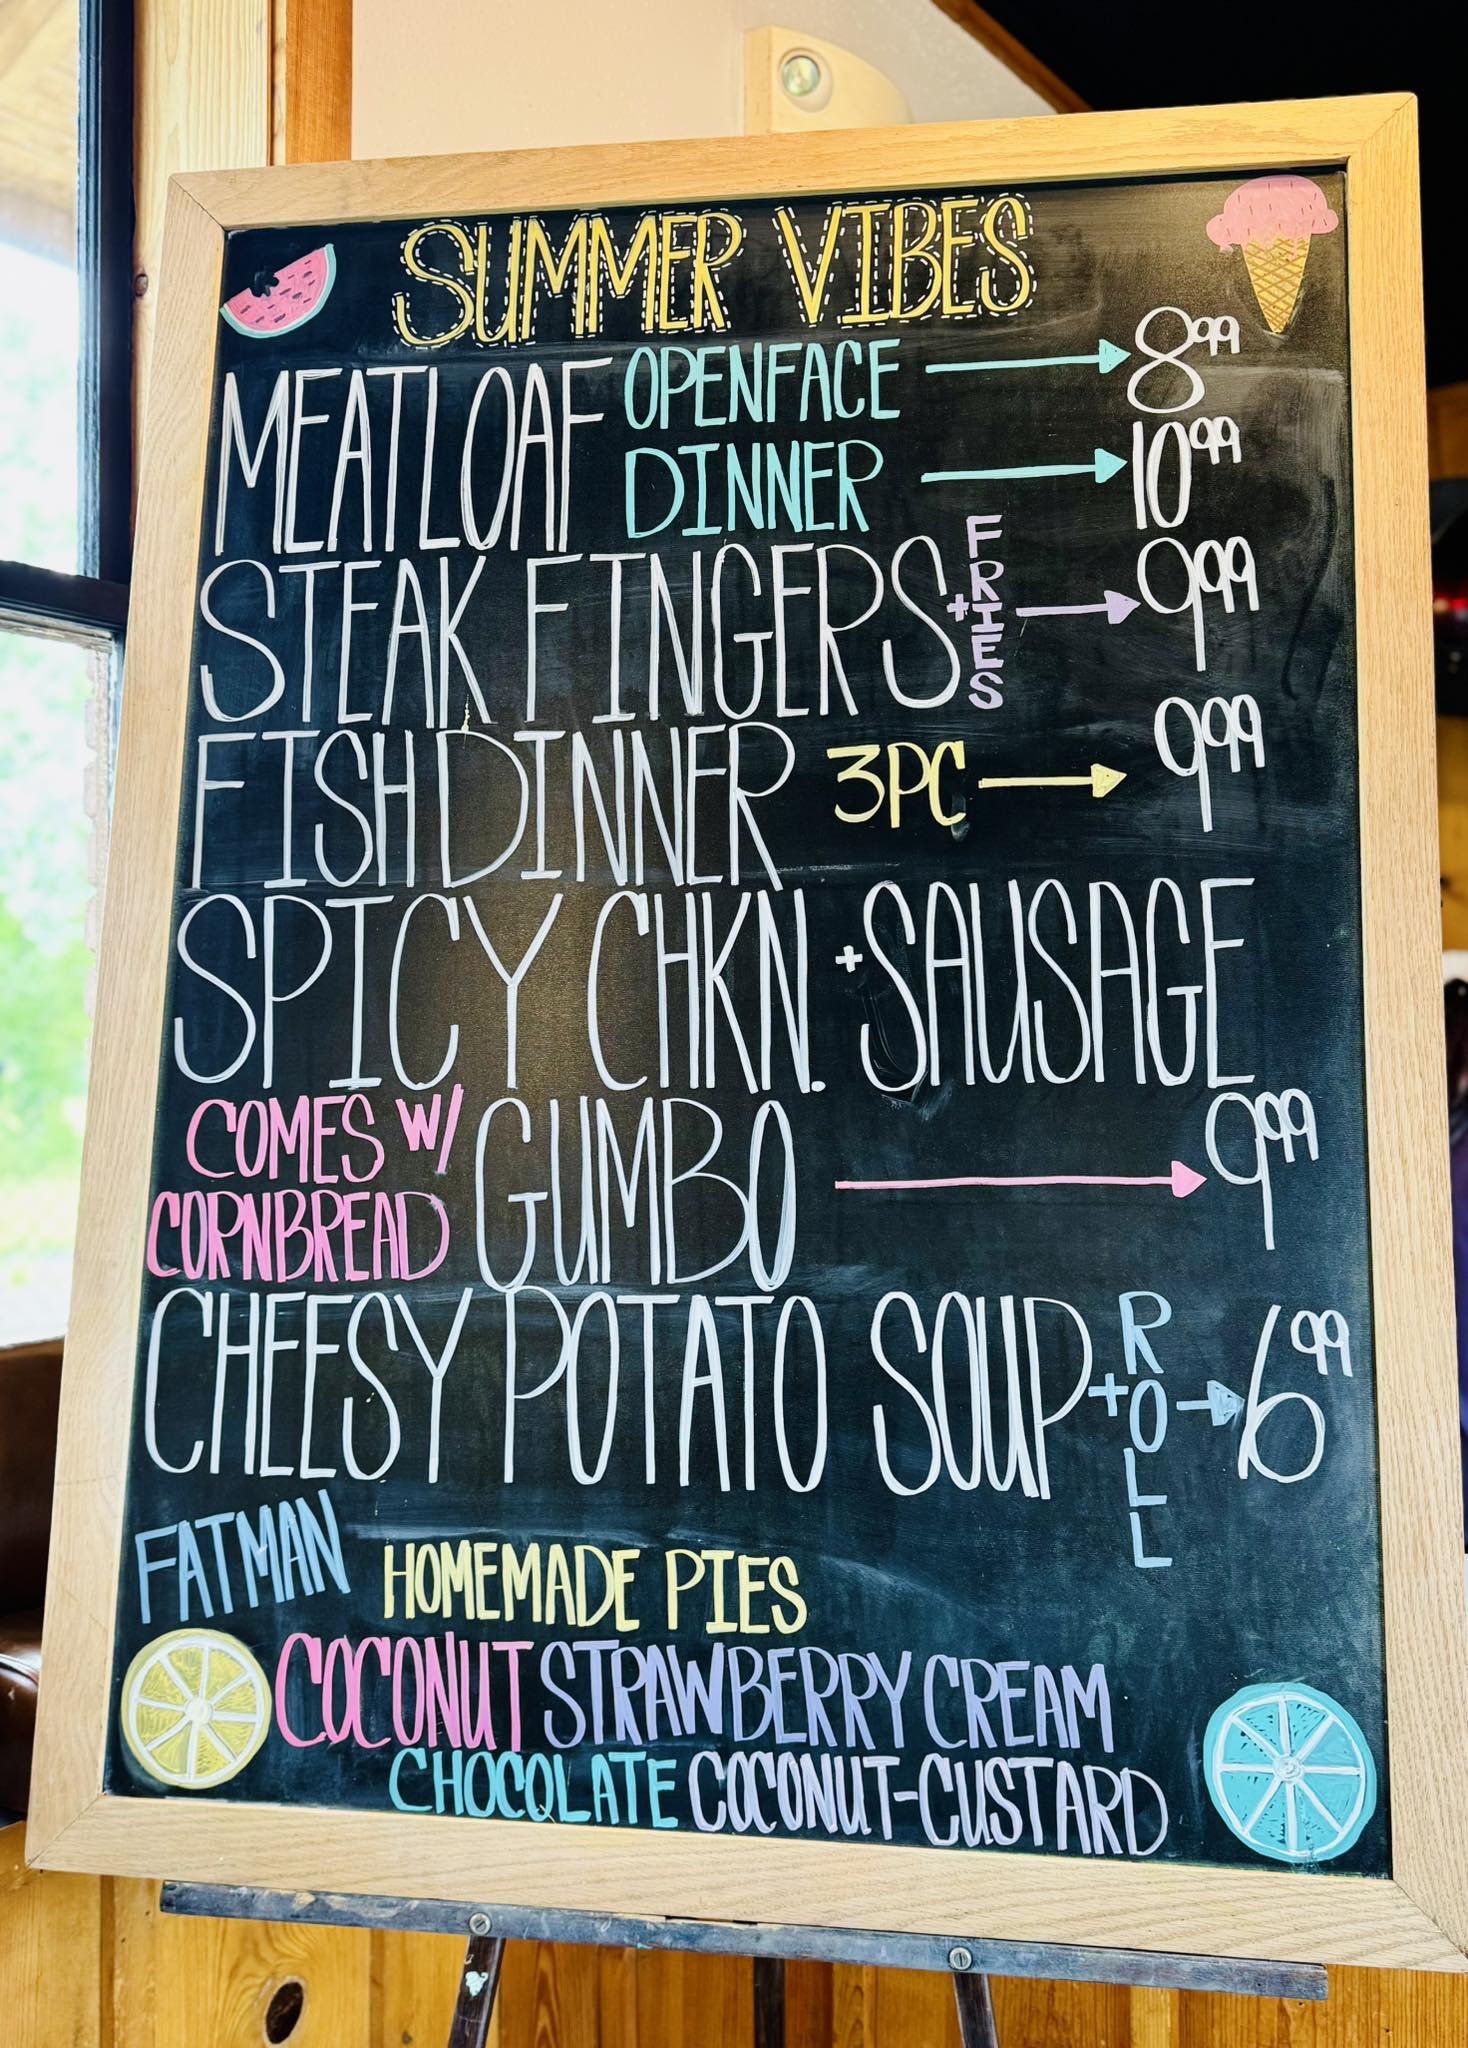 SUMMER VIBES
MEATLOAF OPENFACE → 8.99
DINNER → 10.99
STEAK FINGERS + FRIES → 9.99
FISH DINNER 3PC → 9.99
SPICY CHKN. + SAUSAGE
COMES W/ CORNBREAD GUMBO → 9.99
CHEESY POTATO SOUP + ROLL → 6.99
FATMAN HOMEMADE PIES
COCONUT STRAWBERRY CREAM
CHOCOLATE COCONUT-CUSTARD